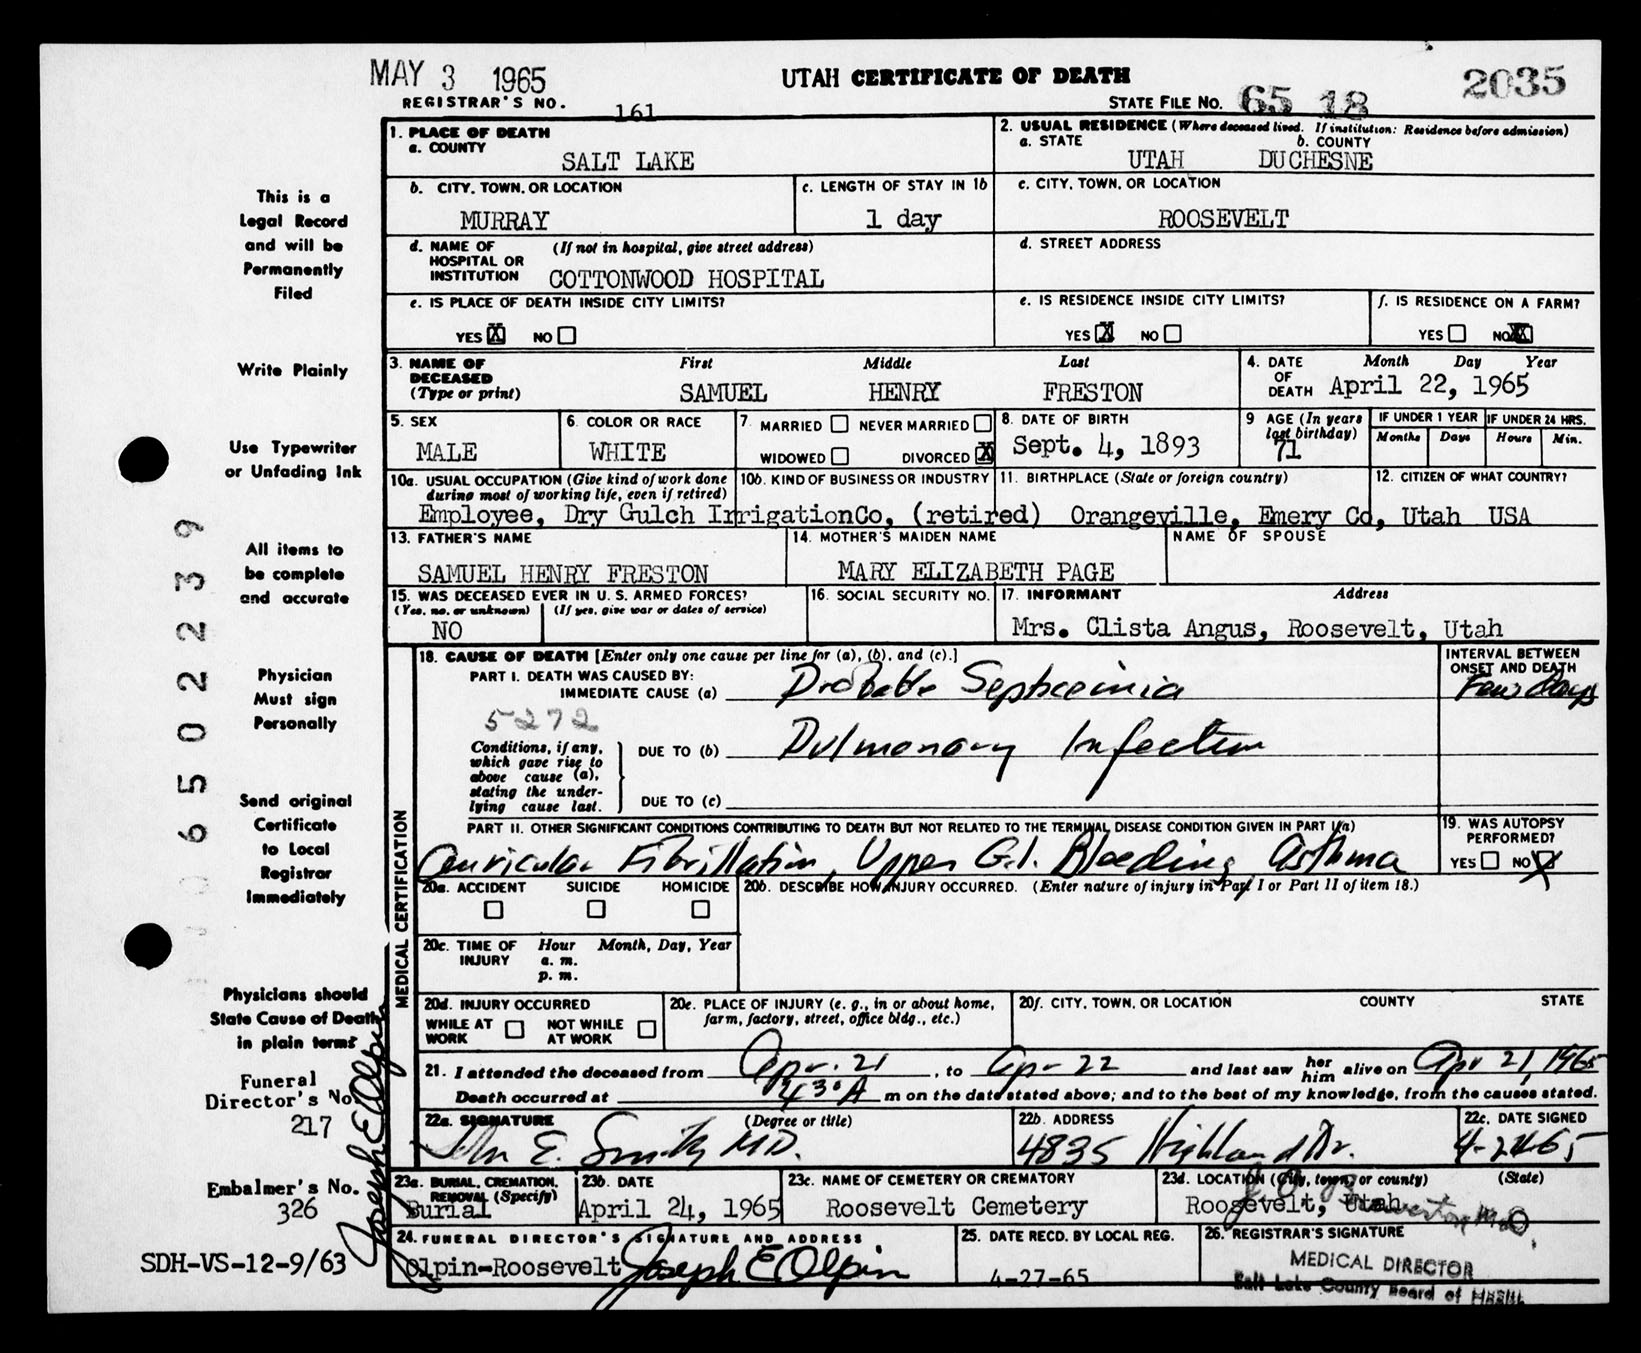 MAY 3 1965
UTAH CERTIFICATE OF DEATH
2035
REGISTRAR'S NO. 161
STATE FILE NO. 65 18
1. PLACE OF DEATH
a. COUNTY
SALT LAKE
2. USUAL RESIDENCE (Where deceased lived. If institution: Residence before admission)
a. STATE b. COUNTY
UTAH DUCHESNE
b. CITY, TOWN, OR LOCATION
MURRAY
c. LENGTH OF STAY IN 1b
1 day
c. CITY, TOWN, OR LOCATION
ROOSEVELT
d. NAME OF HOSPITAL OR INSTITUTION (If not in hospital, give street address)
COTTONWOOD HOSPITAL
d. STREET ADDRESS
e. IS PLACE OF DEATH INSIDE CITY LIMITS?
YES X NO
e. IS RESIDENCE INSIDE CITY LIMITS?
YES X NO
f. IS RESIDENCE ON A FARM?
YES NO X
3. NAME OF DECEASED (Type or print)
First Middle Last
SAMUEL HENRY FRESTON
4. DATE OF DEATH Month Day Year
April 22, 1965
5. SEX
MALE
6. COLOR OR RACE
WHITE
7. MARRIED NEVER MARRIED
WIDOWED DIVORCED X
8. DATE OF BIRTH
Sept. 4, 1893
9 AGE (In years last birthday)
71
IF UNDER 1 YEAR IF UNDER 24 HRS.
Months Days Hours Min.
10a. USUAL OCCUPATION (Give kind of work done during most of working life, even if retired)
10b. KIND OF BUSINESS OR INDUSTRY
11. BIRTHPLACE (State or foreign country)
12. CITIZEN OF WHAT COUNTRY?
Employee, Dry Gulch IrrigationCo, (retired) Orangeville, Emery Co, Utah USA
13. FATHER'S NAME
SAMUEL HENRY FRESTON
14. MOTHER'S MAIDEN NAME
MARY ELIZABETH PAGE
NAME OF SPOUSE
15. WAS DECEASED EVER IN U. S. ARMED FORCES?
(Yes, no, or unknown) (If yes, give war or dates of service)
NO
16. SOCIAL SECURITY NO.
17. INFORMANT Address
Mrs. Clista Angus, Roosevelt, Utah
MEDICAL CERTIFICATION
18. CAUSE OF DEATH [Enter only one cause per line for (a), (b), and (c).]
INTERVAL BETWEEN ONSET AND DEATH
PART I. DEATH WAS CAUSED BY:
IMMEDIATE CAUSE (a) Probable Septicemia
Few days
5272
Conditions, if any, which gave rise to above cause (a), stating the underlying cause last.
DUE TO (b) Pulmonary Infection
DUE TO (c)
PART II. OTHER SIGNIFICANT CONDITIONS CONTRIBUTING TO DEATH BUT NOT RELATED TO THE TERMINAL DISEASE CONDITION GIVEN IN PART I(a)
Auricular Fibrillation, Upper G.I. Bleeding, Asthma
19. WAS AUTOPSY PERFORMED?
YES NO X
20a. ACCIDENT SUICIDE HOMICIDE
20b. DESCRIBE HOW INJURY OCCURRED. (Enter nature of injury in Part I or Part II of item 18.)
20c. TIME OF INJURY Hour Month, Day, Year
a. m.
p. m.
20d. INJURY OCCURRED
WHILE AT WORK NOT WHILE AT WORK
20e. PLACE OF INJURY (e. g., in or about home, farm, factory, street, office bldg., etc.)
20f. CITY, TOWN, OR LOCATION COUNTY STATE
21. I attended the deceased from Apr. 21, to Apr 22 and last saw her him alive on Apr 21, 1965
Death occurred at 4 30 A m on the date stated above; and to the best of my knowledge, from the causes stated.
22a. SIGNATURE (Degree or title)
John E. Smith M.D.
22b. ADDRESS
4835 Highland Dr.
22c. DATE SIGNED
4-24-65
23a. BURIAL, CREMATION, REMOVAL (Specify)
Burial
23b. DATE
April 24, 1965
23c. NAME OF CEMETERY OR CREMATORY
Roosevelt Cemetery
23d. LOCATION (City, town, or county) (State)
Roosevelt, Utah
24. FUNERAL DIRECTOR'S SIGNATURE AND ADDRESS
Olpin-Roosevelt Joseph E Olpin
25. DATE RECD. BY LOCAL REG.
4-27-65
26. REGISTRAR'S SIGNATURE
MEDICAL DIRECTOR
Salt Lake County Board of Health
This is a
Legal Record
and will be
Permanently
Filed
Write Plainly
Use Typewriter
or Unfading Ink
All items to
be complete
and accurate
Physician
Must sign
Personally
Send original
Certificate
to Local
Registrar
immediately
Physicians should
State Cause of Death
in plain terms
Funeral
Director's No.
217
Embalmer's No.
326
Joseph E Olpin
SDH-VS-12-9/63
65022239